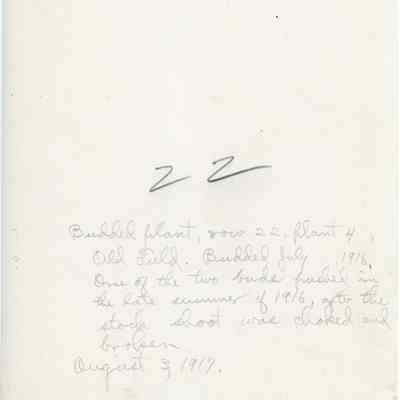 22
Budded plant, row 22, plant 4,
Old Field. Budded July 1916.
One of the two buds pushed in
the late summer of 1916, after the
stock shoot was choked and
broken
August 3, 1917.